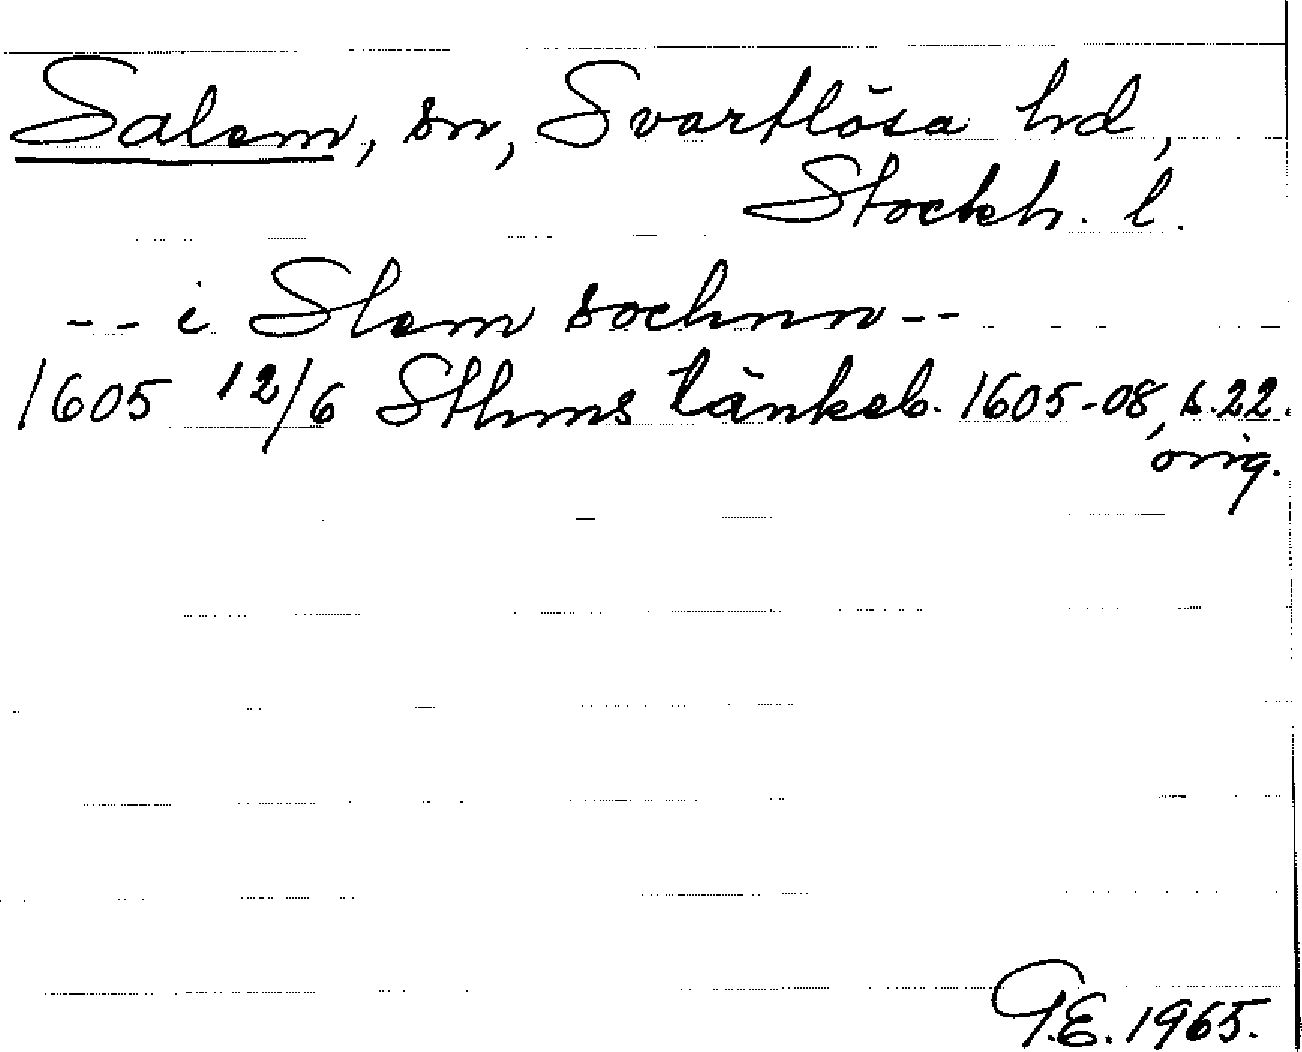 Salem, sn, Svartlösa hd,
Stockh. l.
-- i Slem sochnn --
1605 12/6 Sthms tänkeb. 1605-08, s. 22.
orig.
G.E. 1965.